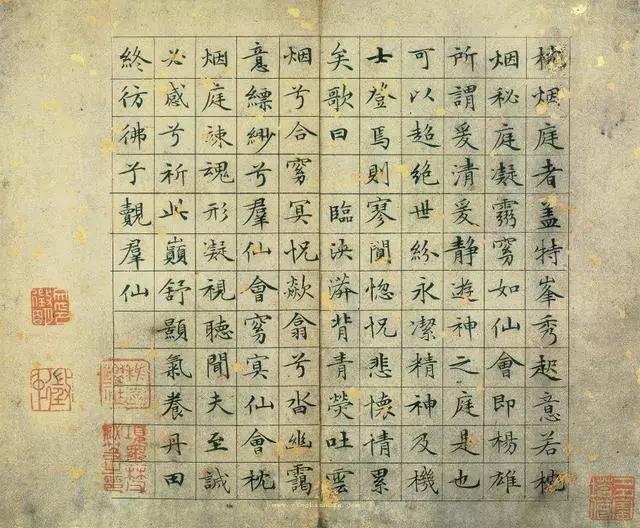 枕烟庭者盖特峯秀起意若枕
烟秘庭凝霛窅如仙會即楊雄
所謂爰清爰静遊神之庭是也
可以超絶世紛永潔精神及機
士登焉則寥闃惚怳悲懷情累
矣歌曰 臨泱漭背青熒吐雲
烟兮合窅冥怳歘翕兮沓幽靄
意縹緲兮羣仙會窅冥仙會枕
烟庭竦魂形凝視聽聞夫至誠
必感兮祈此巔舒顥氣養丹田
終彷彿子覿羣仙